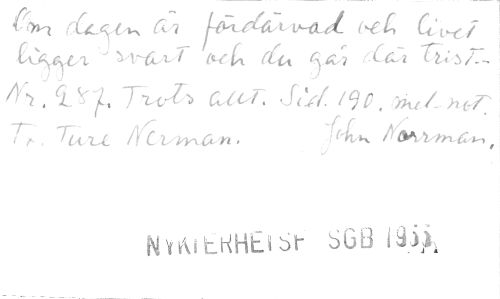 Om dagen är fördärvad och livet
ligger svart och du går där trist-
Nr. 287. Trots allt. Sid. 190. mel-not.
T. Ture Nerman. John Norrman.
NYKTERHETSF SGB 1955